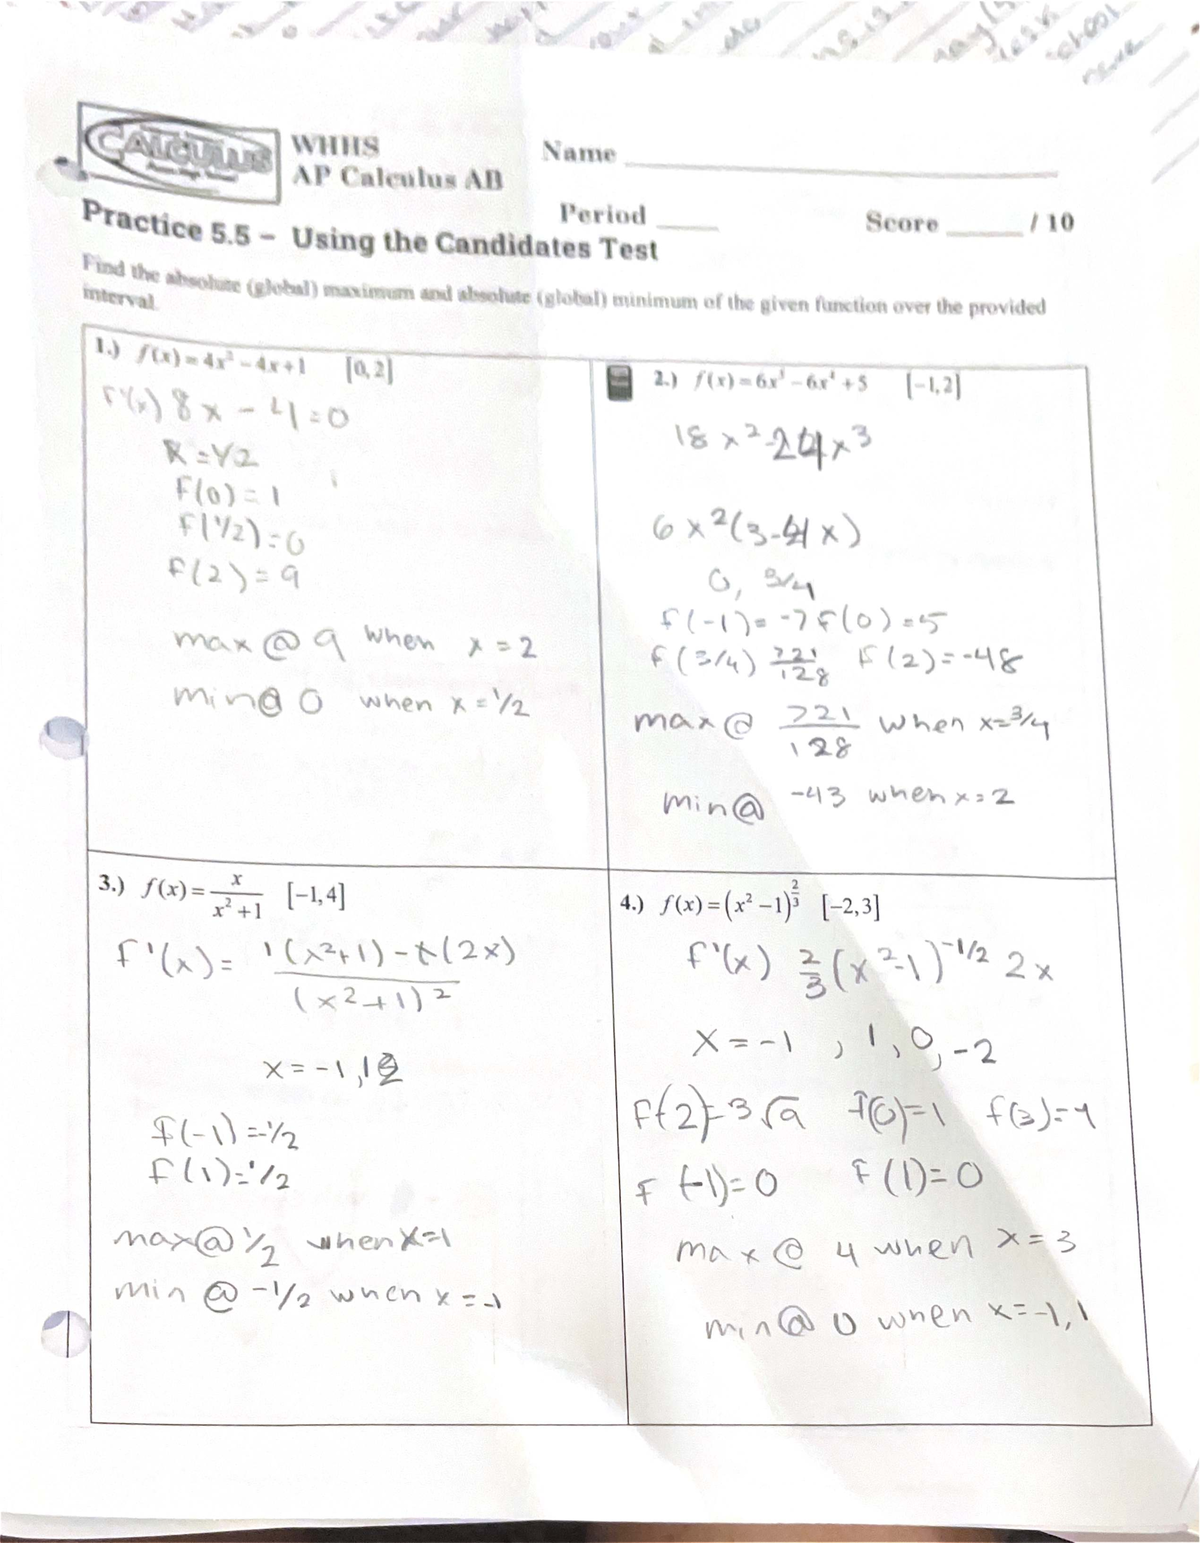 CALCULUS
WHHS
AP Calculus AB
Name
Period
Score / 10
Practice 5.5 – Using the Candidates Test
Find the absolute (global) maximum and absolute (global) minimum of the given function over the provided
interval.
1.) f(x) = 4x² – 4x + 1 [0, 2]
f'(x) 8x – 4 = 0
x = 1/2
f(0) = 1
f(1/2) = 0
f(2) = 9
max @ 9 when x = 2
min @ 0 when x = 1/2
2.) f(x) = 6x³ – 6x⁴ + 5 [–1, 2]
18x² – 24x³
6x²(3–4x)
0, 3/4
f(-1) = -7 f(0) = 5
f(3/4) 721/128 f(2) = -48
max @ 721/128 when x = 3/4
min @ -43 when x = 2
3.) f(x) = x/(x² + 1) [–1, 4]
f'(x) = 1(x²+1) – x(2x) / (x²+1)²
x = -1, 1
f(-1) = -1/2
f(1) = 1/2
max @ 1/2 when x = 1
min @ -1/2 when x = -1
4.) f(x) = (x² – 1)^(2/3) [–2, 3]
f'(x) 2/3 (x²-1)^(-1/2) 2x
x = -1, 1, 0, -2
f(-2) = 3√9 f(0) = 1 f(3) = 4
f(-1) = 0 f(1) = 0
max @ 4 when x = 3
min @ 0 when x = -1, 1